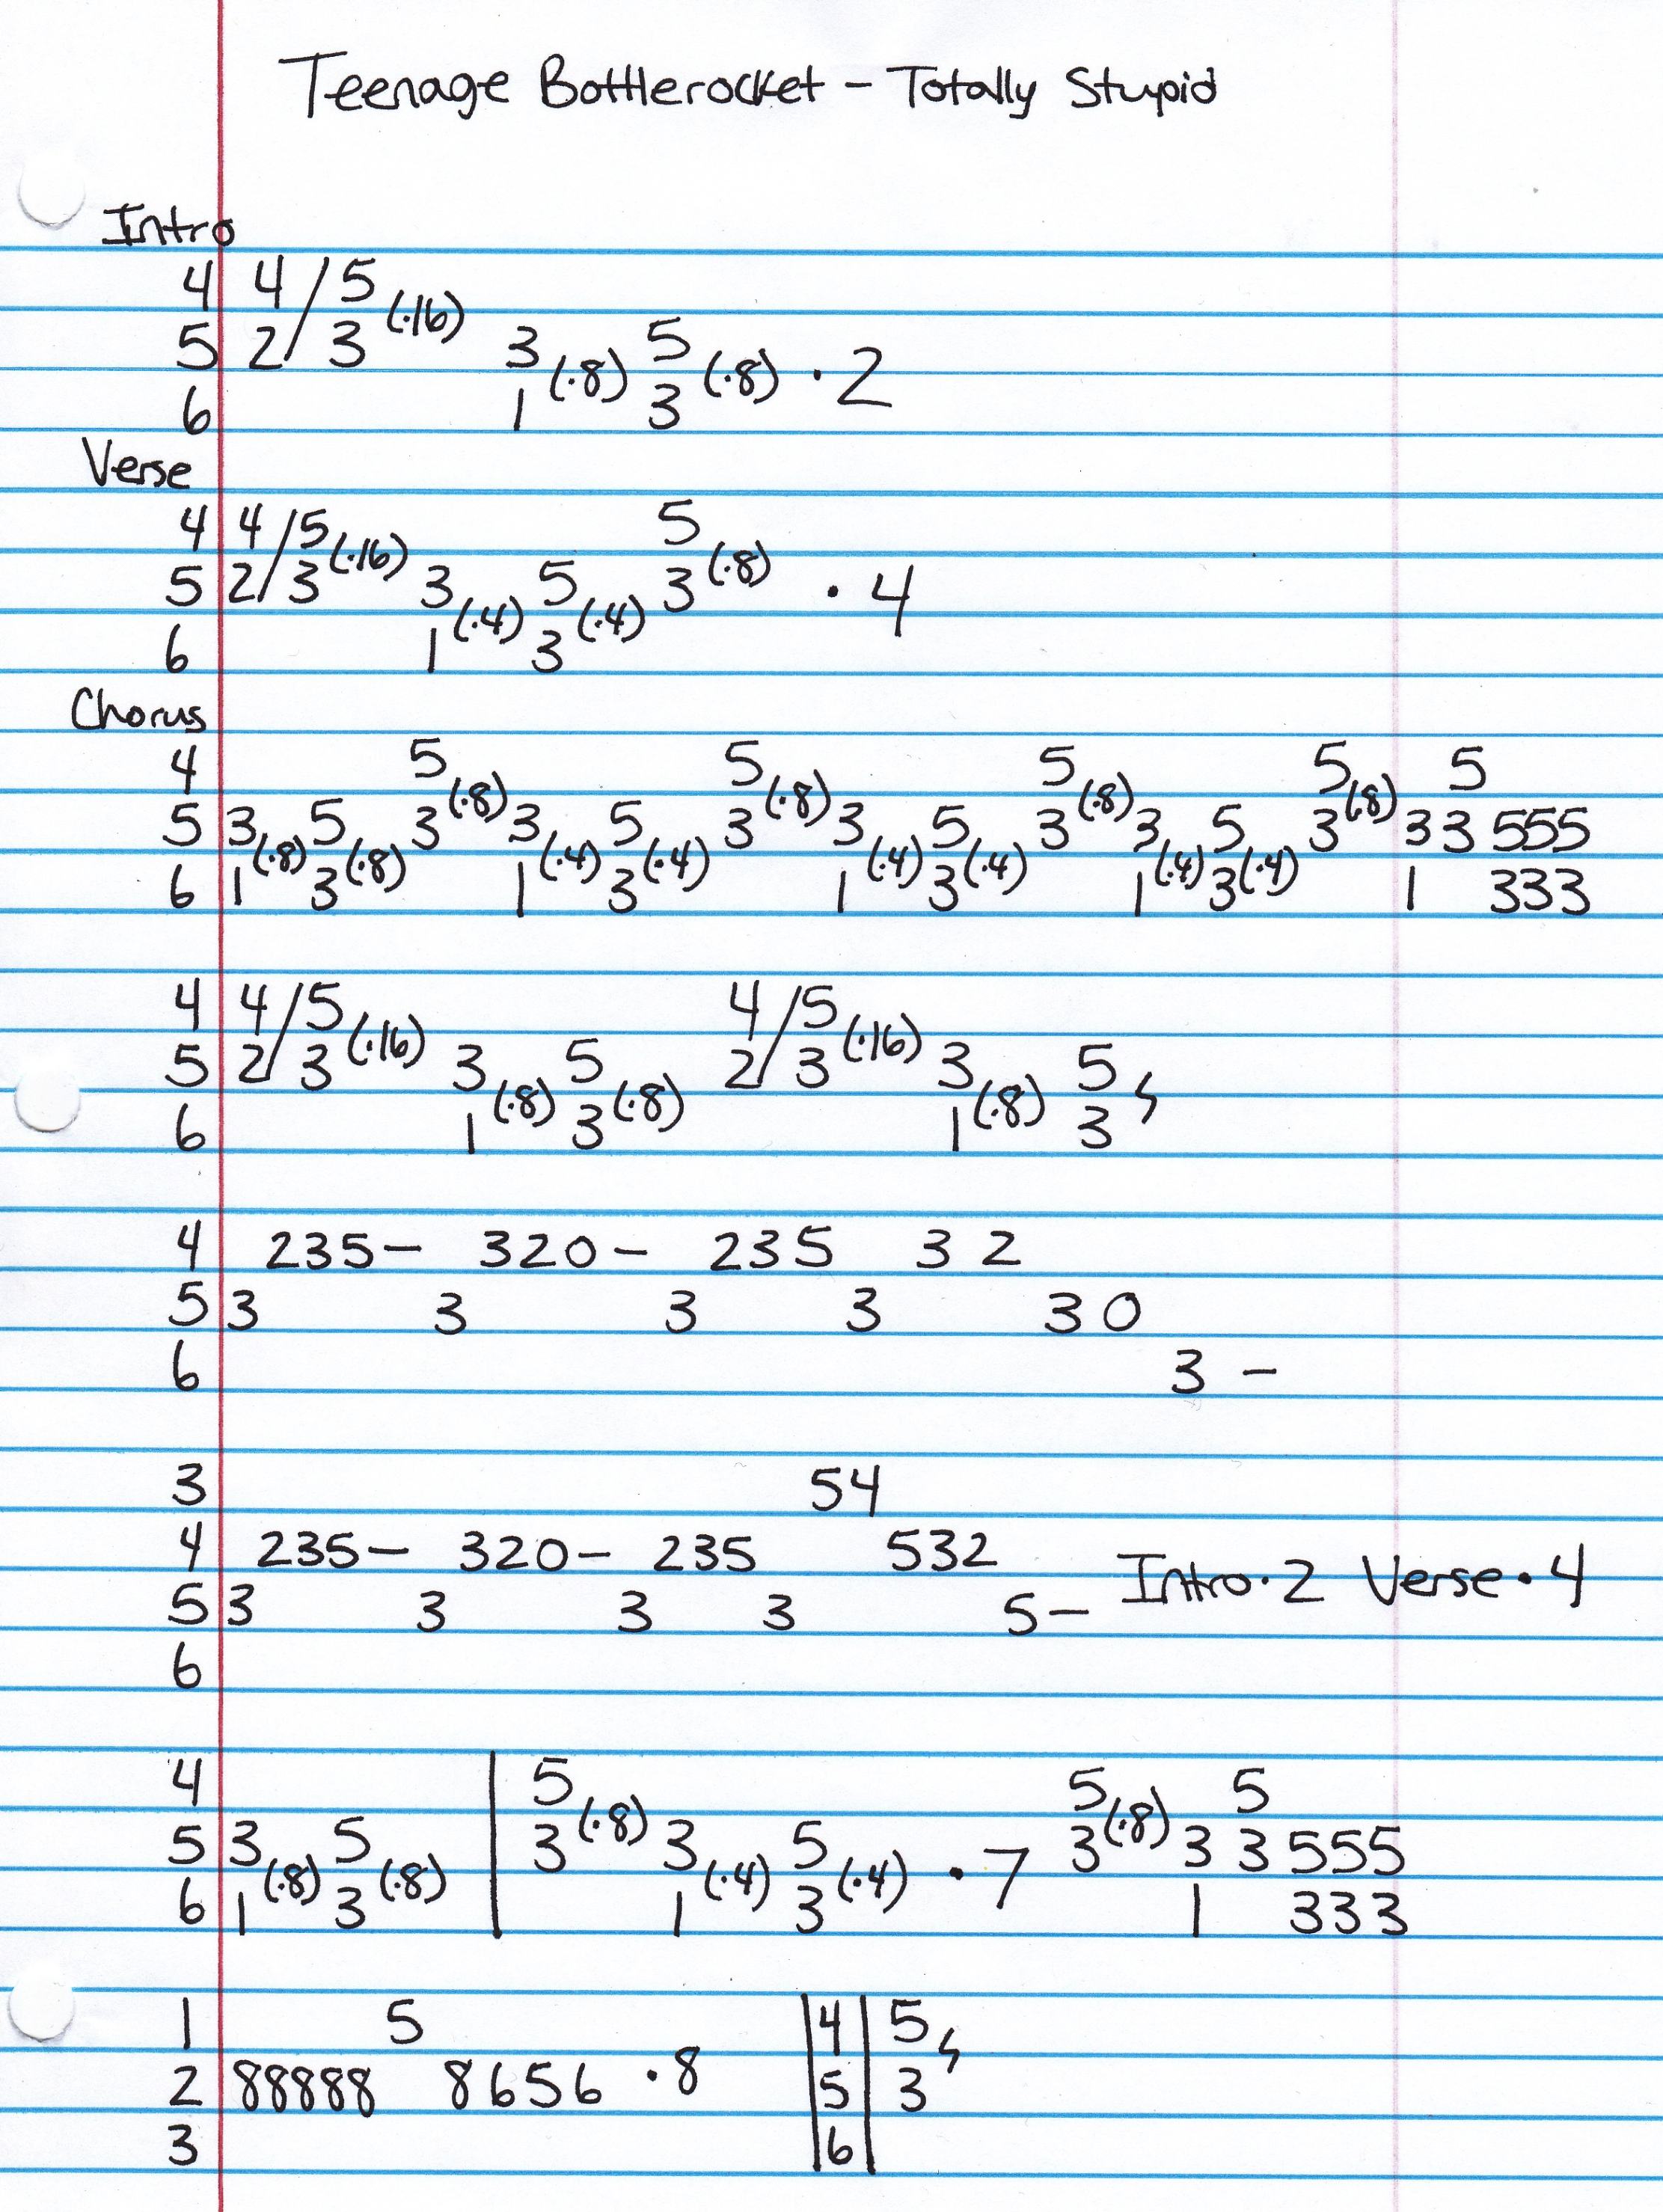 Teenage Bottlerocket - Totally Stupid
Intro
4 4/5 (·16)
5 2/3 3 (·8) 5 (·8) · 2
6 1 3
Verse
4 4/5 (·16) 5 (·8)
5 2/3 3 (·4) 5 (·4) 3 · 4
6 1 3
Chorus
4 5 (·8) 5 (·8) 5 (·8) 5 (·8) 5
5 3 (·8) 5 (·8) 3 3 (·4) 5 (·4) 3 3 (·4) 5 (·4) 3 3 (·4) 5 (·4) 3 3 3 555
6 1 3 1 3 1 3 1 3 1 333
4 4/5 (·16) 4/5 (·16)
5 2/3 3 (·8) 5 (·8) 2/3 3 (·8) 5
6 1 3 1 3
4 235- 320- 235 3 2
5 3 3 3 3 3 0
6 3 -
3 54
4 235- 320- 235 532
5 3 3 3 3 5- Intro · 2 Verse · 4
6
4 | 5 (·8) 5 (·8) 5
5 3 (·8) 5 (·8) | 3 3 (·4) 5 (·4) · 7 3 3 3 555
6 1 3 | 1 3 1 333
1 5 |4| 5
2 88888 8656 · 8 |5| 3
3 |6|